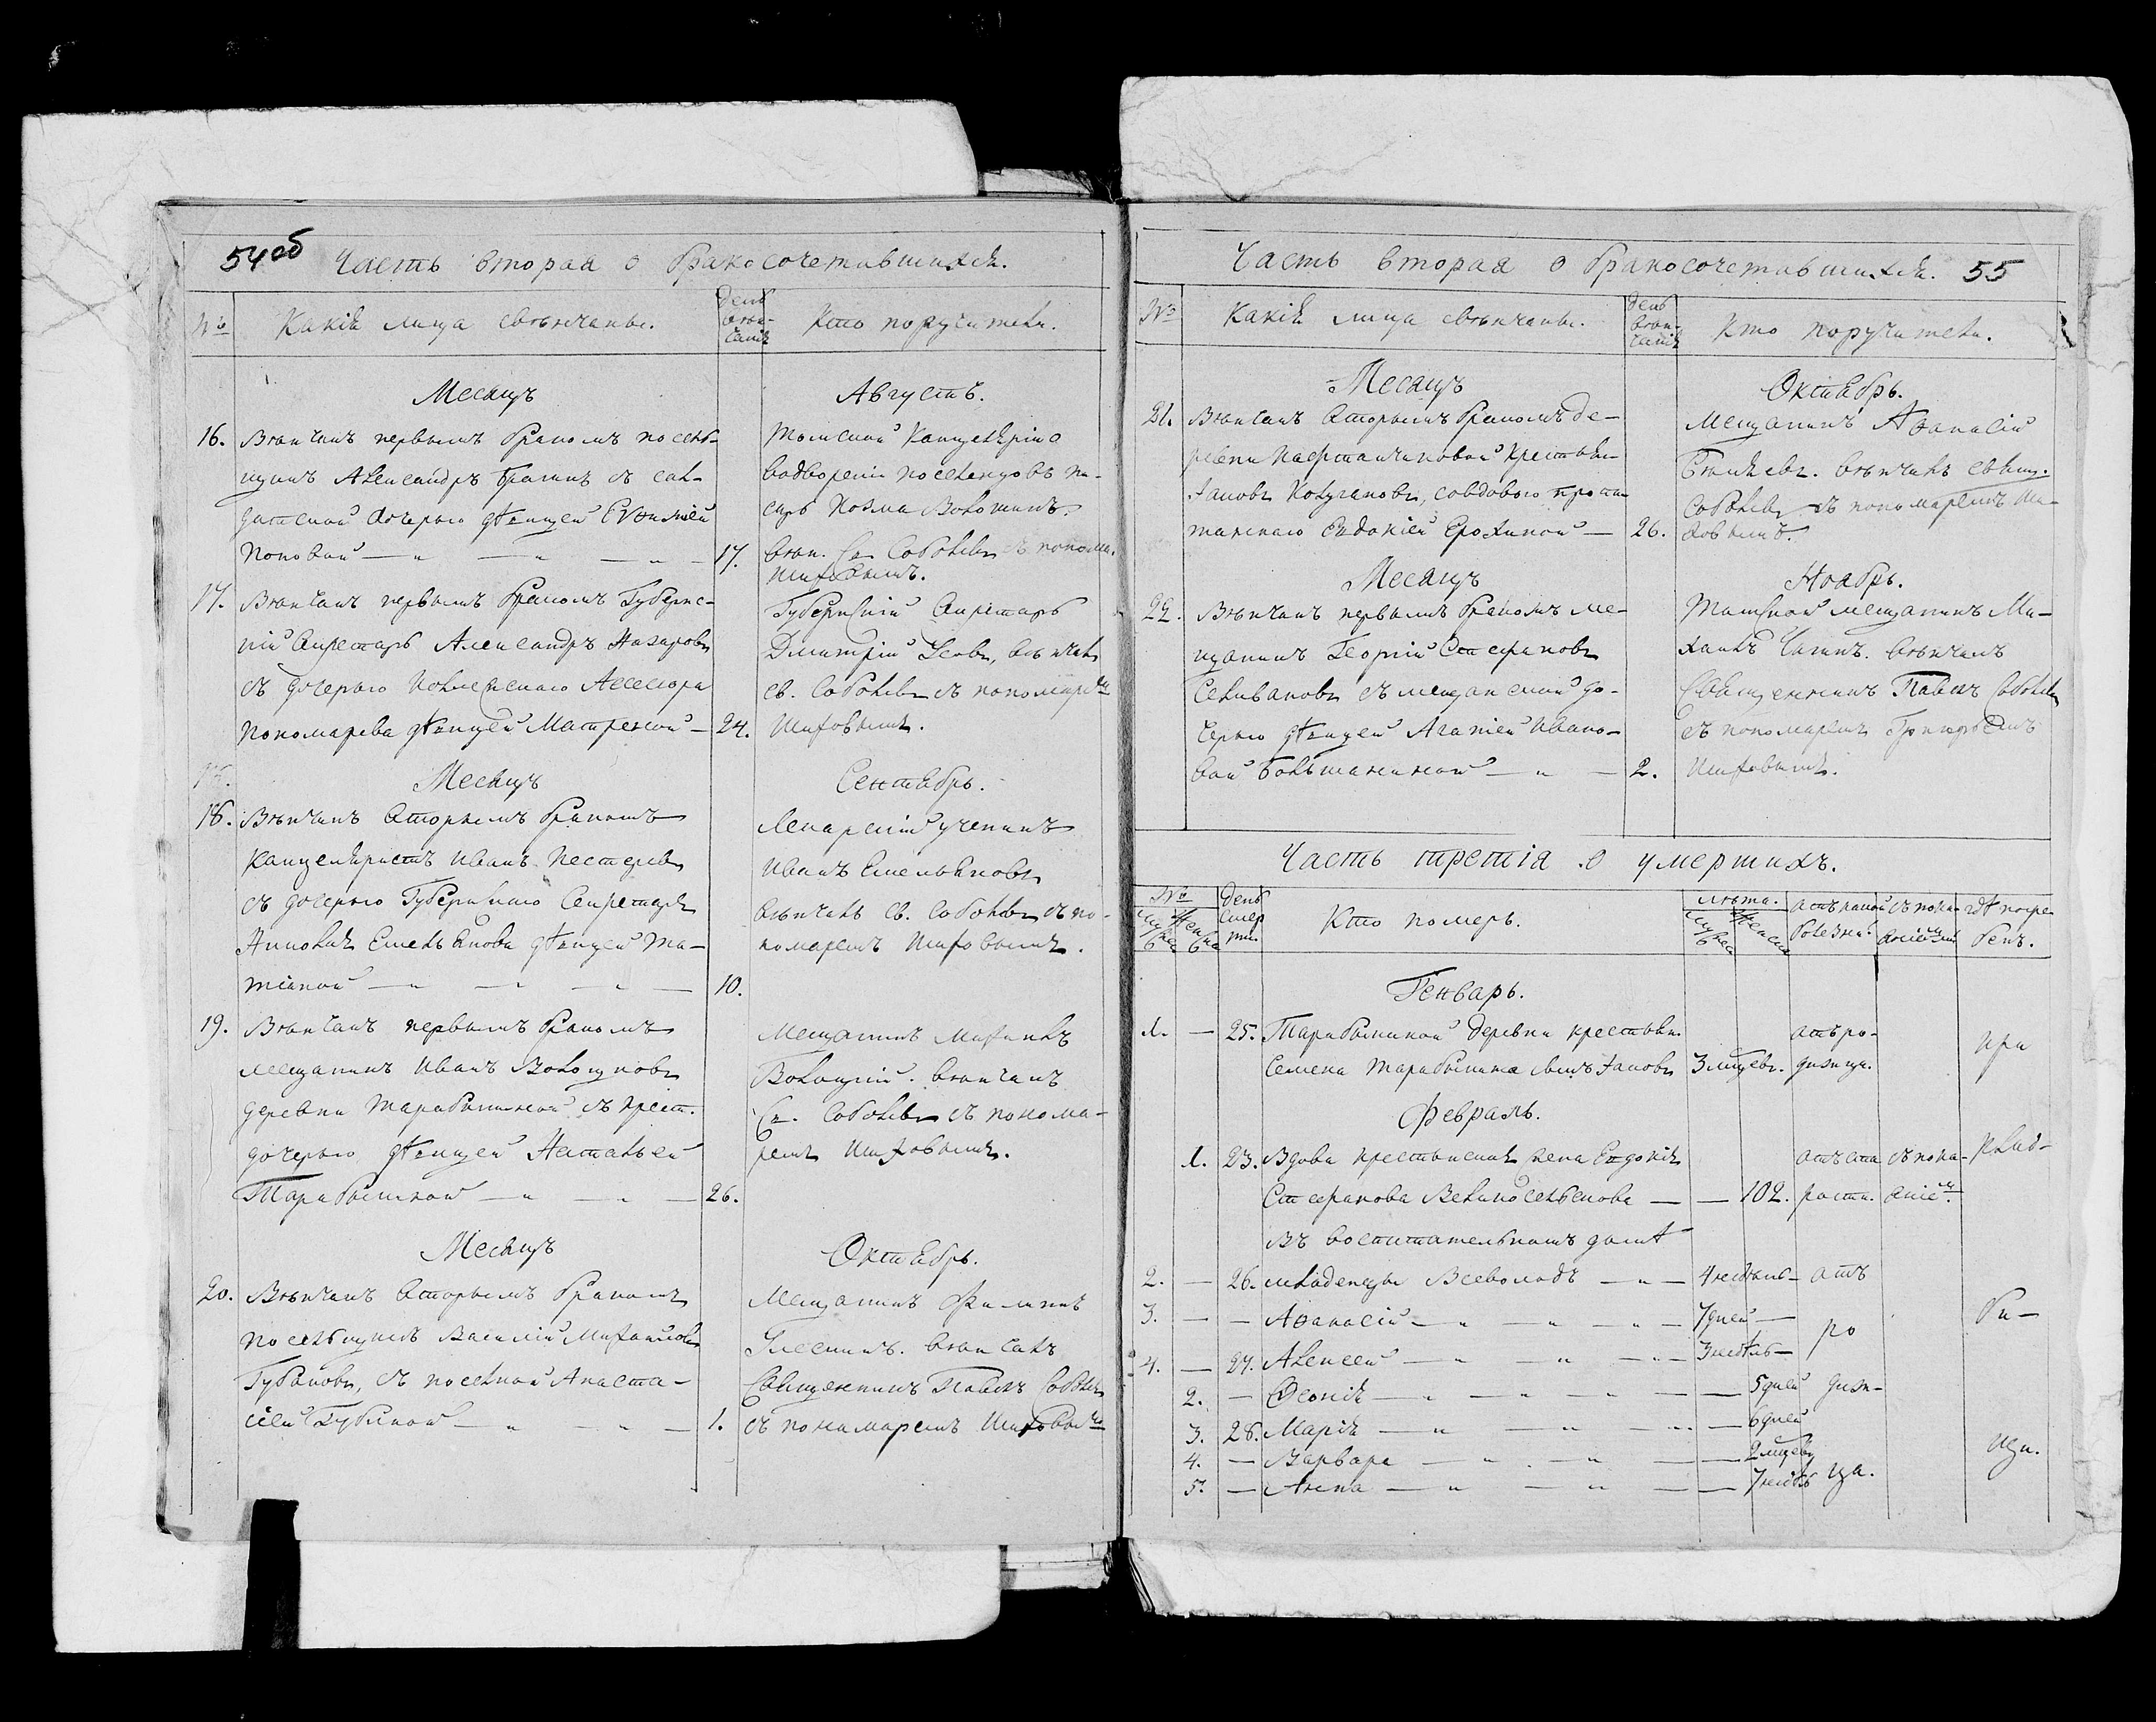 54 об Часть вторая о бракосочетавшихся.
№ Какія лица свѣнчаны. День вѣнчанія Кто поручители.
Месяцъ Августъ.
16. Вѣнчанъ первымъ бракомъ посель-
щикъ Александръ съ сол-
датской дочерью дѣвицей Евѳиміей
Поповой 17.
Томской Канцеляріи о
водвореніи поселенцовъ пи-
сарь Козма Волотинъ.
вѣн. Св. Соболевъ съ понома.
Шиховымъ.
17. Вѣнчанъ первымъ бракомъ Губернс-
кій Секретарь Александръ Назаровъ
съ дочерью Колежскаго Ассесора
Пономарева дѣвицей Матреной 24.
Губернскій Секретарь
Дмитрій вѣнчалъ
св. Соболевъ съ пономаремъ
Шиховымъ.
Месяцъ Сентябрь.
18. Вѣнчанъ вторымъ бракомъ
Канцеляристъ Иванъ Нестеровъ
съ дочерью Губернскаго Секретаря
Емельянова дѣвицей Та-
тіяной 10.
Лекарскій ученикъ
Иванъ Емельяновъ
вѣнчалъ св. Соболевъ съ по-
номаремъ Шиховымъ.
19. Вѣнчанъ первымъ бракомъ
мещанинъ Иванъ Волощуковъ
деревни Тарабыкиной съ крест.
дочерью дѣвицей Натальей
Тарабыкиной 26.
Мещанинъ Михаилъ
Волоцкій. вѣнчалъ
Св. Соболевъ съ понома-
ремъ Шиховымъ.
Месяцъ Октябрь.
20. Вѣнчанъ вторымъ бракомъ
посельщикъ Василій Михайловъ
Губановъ, съ поселкой Анаста-
сіей Губиной 1.
Мещанинъ Филипъ
вѣнчалъ
Священникъ Павелъ Соболевъ
съ пономаремъ Шиховымъ
Часть вторая о бракосочетавшихся. 55
№ Какія лица свѣнчаны. День вѣнчанія Кто поручители.
Месяцъ Октябрь.
21. Вѣнчанъ вторымъ бракомъ де-
ревни Кафтанчиковой крестьян-
Іаковъ Колугановъ, со вдовою
Евдокіей Ерохиной 26.
Мещанинъ Аѳанасій
вѣнчалъ свящ.
Соболевъ съ пономаремъ Ши-
ховымъ.
Месяцъ Ноябрь.
22. Вѣнчанъ первымъ бракомъ ме-
щанинъ Георгій Стефановъ
Селивановъ съ мещанской до-
черью дѣвицей Агапіей Ивано-
вой Большаниной 2.
Томской мещанинъ Ми-
хаилъ Чагинъ. вѣнчалъ
Священникъ Павелъ Соболевъ
съ пономаремъ
Шиховымъ.
Часть третія о умершихъ.
№ Мужеска Женска День смерти Кто померъ. лѣта. Мужеска Женска Отъ какой болезни. съ покаяніемъ гдѣ погребенъ.
Генварь.
1. — 25. Тарабыкиной деревни крестьян.
Семена Тарабыкина сынъ Іаковъ 3 мѣсяц. отъ родимца. при
Февраль.
1. 23. Вдова крестьянская жена Евдокія
Стефанова Великосельскова — 102. отъ старости. съ покаяніем. клад-
Въ воспитательномъ домѣ
2. — 26. младенцы Всеволодъ 4 недѣль отъ
3. — — Аѳанасій 7 дней ро би-
4. — 27. Алексей 3 недѣль
2. — Ѳеонія 5 дней дим-
3. 28. Марія 6 дней
4. — Варвара 2 мѣсяц щи.
5. — Анна 7 недѣль ца.